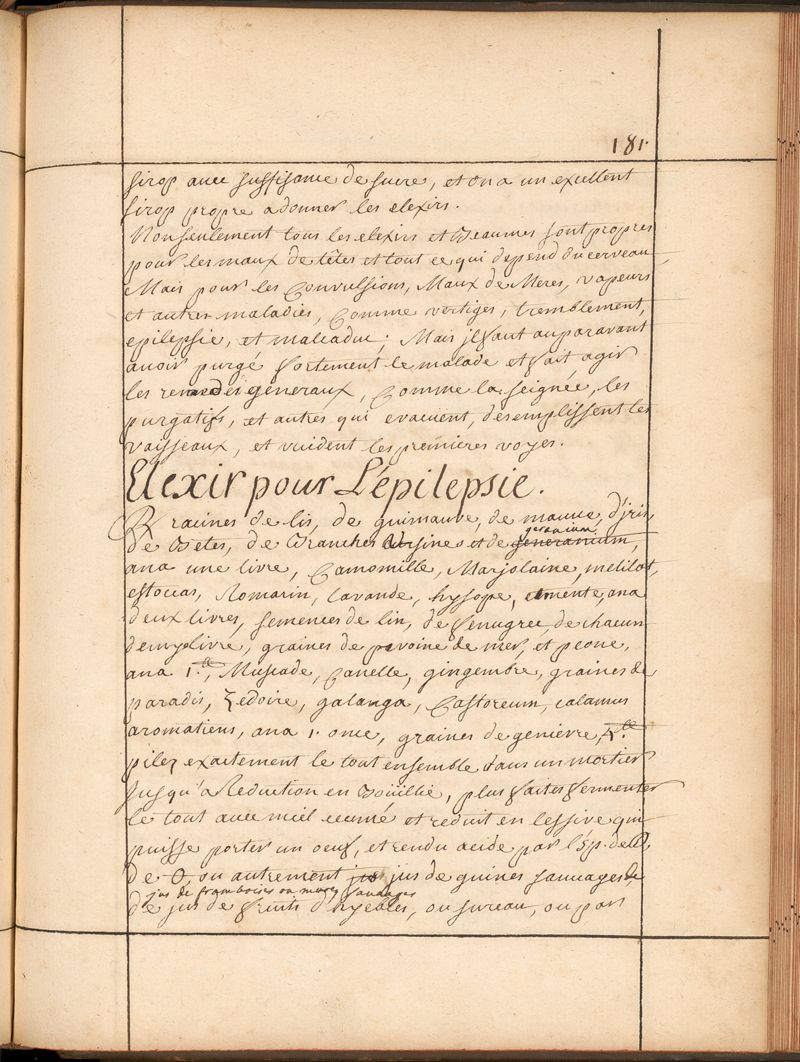 181.
sirop avec suffisance de sucre, et on a un excellent
sirop propre a donner les elexirs.
Nonseulement tous les elexirs et Beaumes sont propres
pour les maux de têtes et tout ce qui depend du cerveau
Mais pour les Convulsions, Maux de Meres, vapeurs
et autres maladies, Comme vertiges, tremblement,
epilepsie, et malcaduc; Mais il faut auparavant
avoir purgé fortement le malade et fait agir
les remedes generaux, Comme la seignée, les
purgatifs, et autres qui evacuent, desemplissent les
vaisseaux, et vuident les premieres voyes.
Elexir pour L'épilepsie.
℞ racines de lis, de guimauve, de mauve, d'iris
geranium
de Betes, de Branches Ursines et de generanium,
ana une livre, Camomille, Marjolaine, melilot,
estocas, Romarin, lavande, hysope, et mente, ana
deux livres, semences de lin, de fenugrec, de chacun
demy livre, graines de pivoine de mer, et peone,
ana 1. Muscade, Canelle, gingembre, graines de
paradis, Zedoire, galanga, Castoreum, calamus
aromaticus, ana 1. once, graines de genievre,
pilez exactement le tout ensemble dans un mortier
jusqu'a Reduction en Boüillie, plus faites fermenter
le tout avec miel ecumé et reduit en lessive qui
puisse porter un oeuf, et rendu acide par l'Esp. de
de ou autrement jus jus de guines sauvages,
jus de framboises ou mures sauvages
de jus de fruits d'hyebles, ou sureau, ou par